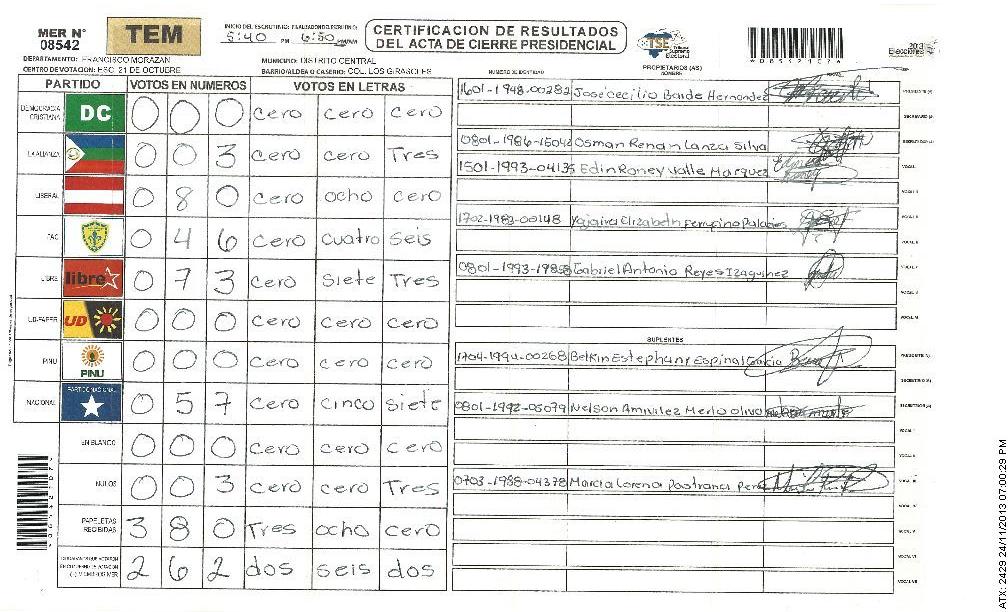 MER N° 08542
TEM
INICIO DEL ESCRUTINIO: FINALIZACION DEL ESCRUTINIO:
5:40 PM 6:50 PM
CERTIFICACION DE RESULTADOS
DEL ACTA DE CIERRE PRESIDENCIAL
TSE Tribunal Supremo Electoral
2013 Elecciones
DEPARTAMENTO: FRANCISCO MORAZAN
MUNICIPIO: DISTRITO CENTRAL
CENTRO DE VOTACION: ESC. 21 DE OCTUBRE
BARRIO/ALDEA O CASERIO: COL. LOS GIRASOLES
NUMERO DE IDENTIDAD
PROPIETARIOS (AS)
NOMBRE
PARTIDO VOTOS EN NUMEROS VOTOS EN LETRAS
DEMOCRACIA CRISTIANA DC 0 0 0 cero cero cero
LA ALIANZA 0 0 3 cero cero Tres
LIBERAL 0 8 0 cero ocho cero
PAC 0 4 6 cero cuatro seis
LIBRE libre 0 7 3 cero siete Tres
UD-FAPER UD 0 0 0 cero cero cero
PINU PINU 0 0 0 cero cero cero
NACIONAL PARTIDO NACIONAL 0 5 7 cero cinco siete
EN BLANCO 0 0 0 cero cero cero
NULOS 0 0 3 cero cero Tres
PAPELETAS RECIBIDAS 3 8 0 Tres ocho cero
CIUDADANOS QUE VOTARON EN CUADERNO DE VOTACION (+) MIEMBROS MER 2 6 2 dos seis dos
1601-1948-00282 José Cecilio Barde Hernandez PRESIDENTE (A)
SECRETARIO (A)
0801-1986-15042 Osman Renan Lanza Silva
1501-1993-04135 Edin Roney Valle Marquez VOCAL I
VOCAL II
1702-1983-00148 Yojaira Elizabeth Palacios VOCAL III
VOCAL IV
Gabriel Antonio Reyes Izaguirrez VOCAL V
VOCAL VI
SUPLENTES
1704-1994-00268 Belkin Estephany Espinal Garcia PRESIDENTE (A)
SECRETARIO (A)
0801-1992-05079 Nelson Merlo Oliva
VOCAL I
VOCAL II
0703-1988-04378 Marcia Lorena Pastrana VOCAL III
VOCAL IV
VOCAL V
VOCAL VI
VOCAL VII
ATX: 2429 24/11/2013 07:00:29 PM